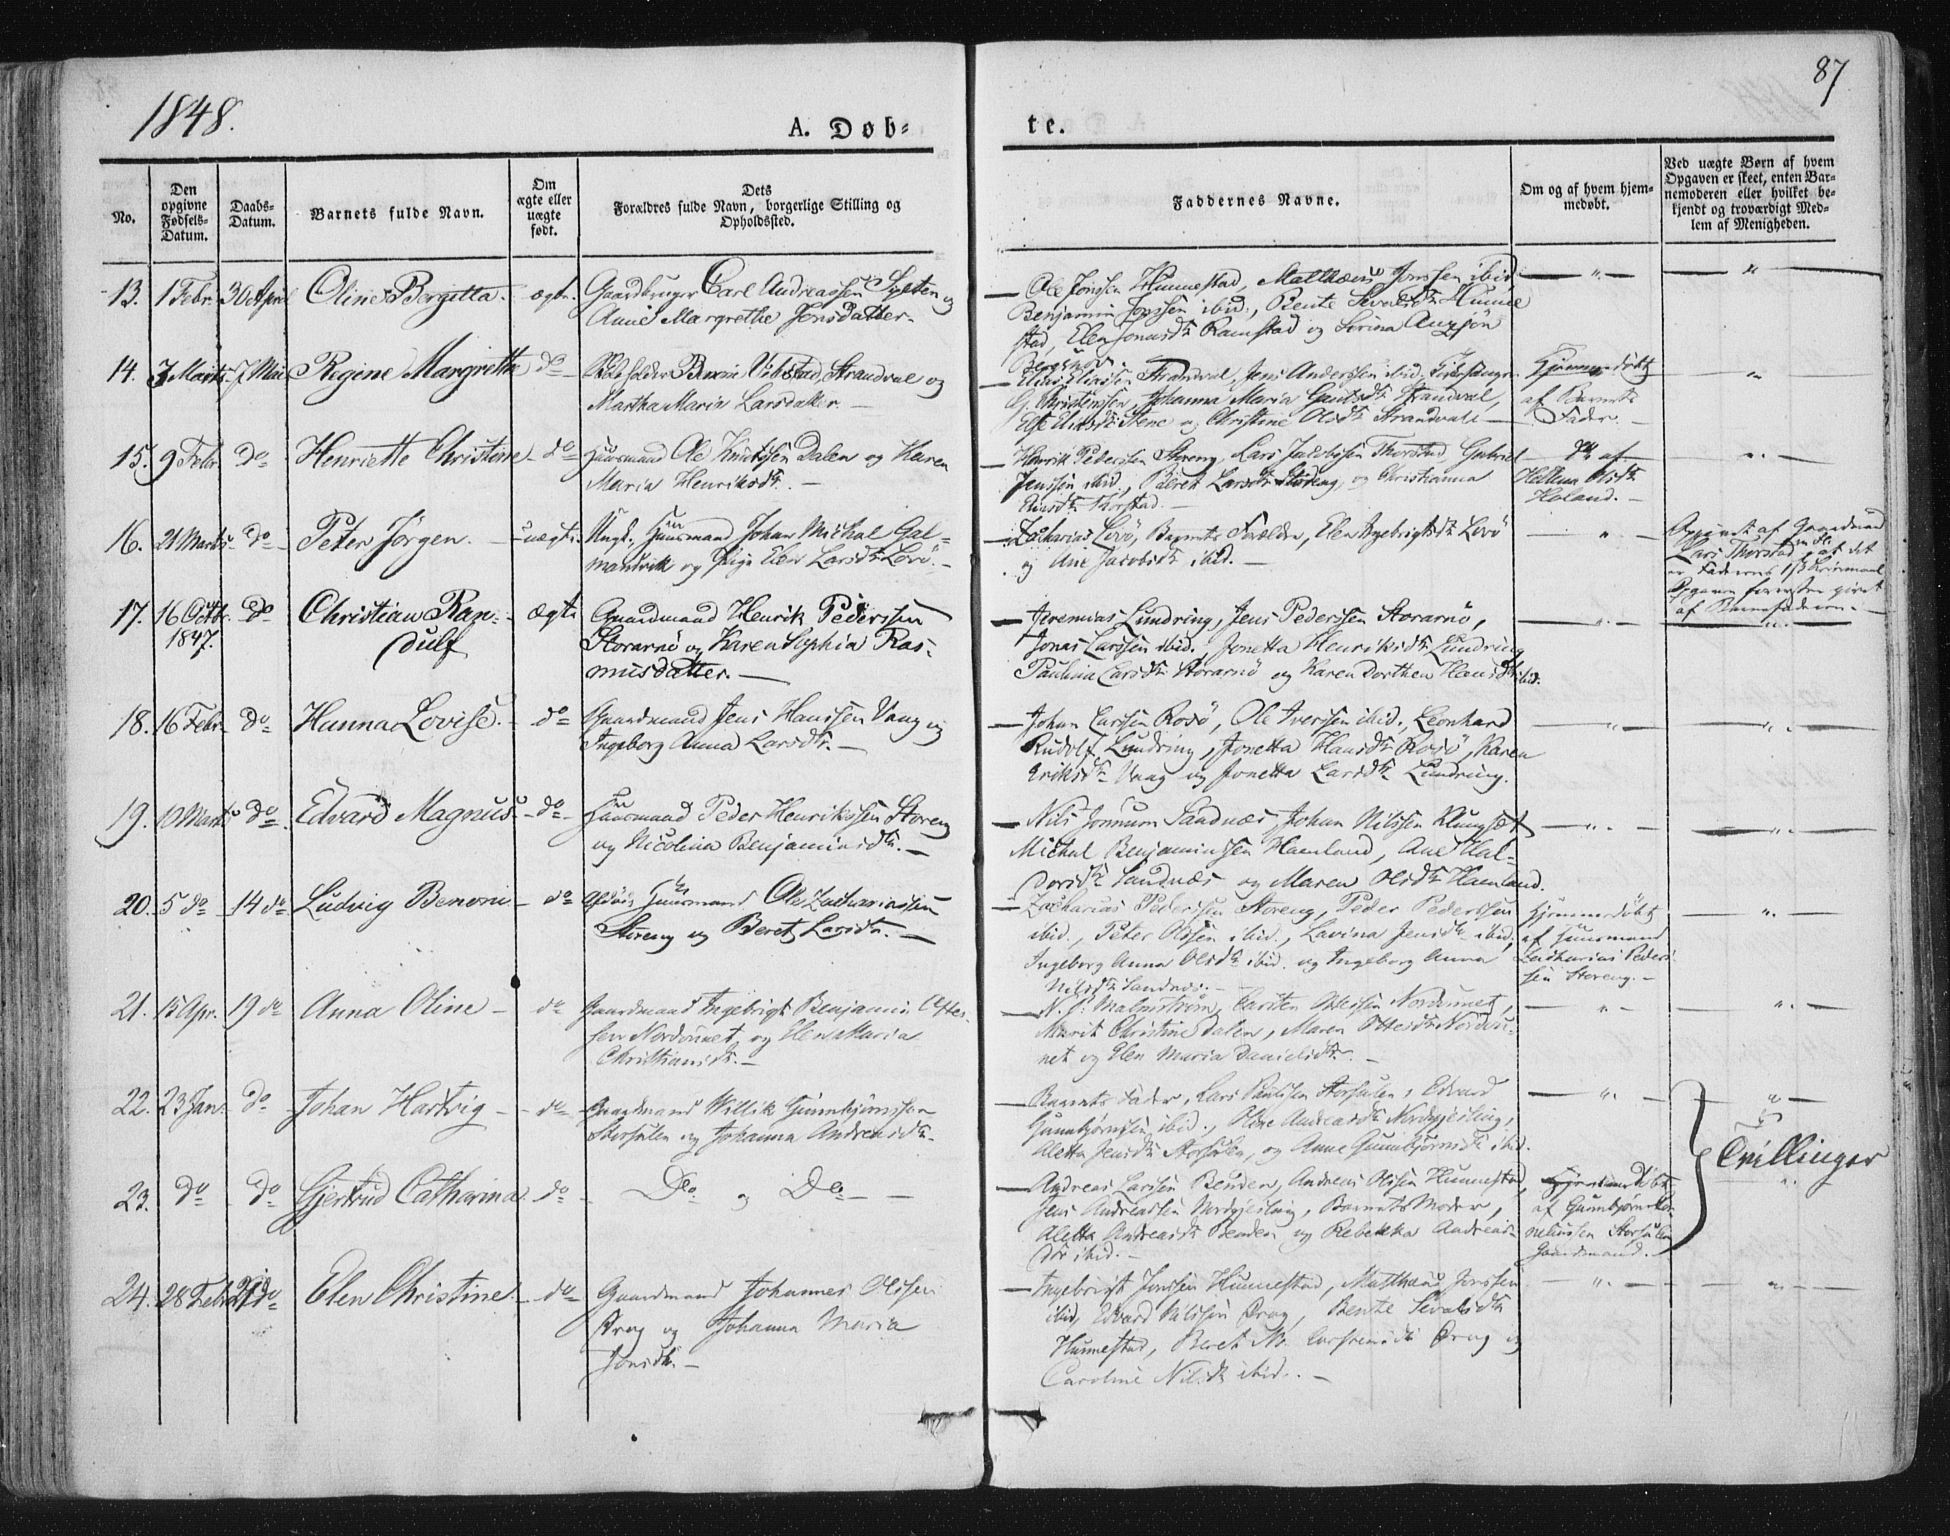 1848.
A. Døb-
te.
87
No.
Den opgivne Fødsels-Datum.
Daabs-Datum.
Barnets fulde Navn.
Om ægte eller uægte født.
Dets Forældres fulde Navn, borgerlige Stilling og Opholdssted.
Faddernes Navne.
Om og af hvem hjem-medøbt.
Ved uægte Børn af hvem Opgaven er skeet, enten Bar-nemoderen eller hvilket be-kjendt og troværdigt Med-lem af Menigheden.
13. 1 Febr. 30 April Oline Bergitta. ægte. Gaardbruger Carl Andreassen Sylten og
Anne Margrethe Jonsdatter.
Ole Jonsen Hunnestad, Matthæus Jonssen ibid.
Benjamin Jonssen ibid., Bente Sivalsdtr Hunne
stad, Elen Jonasdtr Ramstad og Serina
14. 7 Marts 7 Mai Regine Margrethe do
Strandval og
Martha Maria Larsdatter.
Elias Eliassen Strandval, Jens Anderssen ibid.
G. Christenssen, Johanna Maria Strandval,
Stene og Christine Olsdtr Strandvall
Hjemmedøbt
af Barnets
Fader.
15. 9 Febr. do Henriette Christine do Huusmand Ole Knutssen Dalen og Karen
Maria Henriksdtr.
Henrik Pedersen Storeng, Lars Jacobssen Thorstad, Gabriel
Jenssen ibid., Beret Larsdtr Storeng, og Christianna
Thorstad.
do af
Hellena Olsdtr
Holand.
16. 21 Marts do Peter Jörgen. uægte. Ungk., Huusmand Johan Mickal Gal-
mandvik og Pige Elen Larsdtr Lovö.
Zacharias Lovö, Barnets Forældre, Elen Ingebrigtsdtr Lovö
og Ane Jacobsdtr ibid.
Opgivet af Gaardmand
Lars Thorstad, at det
er Faderens 1ste Leiermaal
af Barnefaderen.
17. 16 Octbr. 1847. do Christian Ran-
dulf ægte Gaardmand Henrik Pederssen
Storarnö og Karen Sophia Ras-
musdatter.
Jeremias Lundring, Jens Pederssen Storarnö,
Jonas Larssen ibid., Jonetta Henriksdtr Lundring
Paulina Larsdtr Storarnö og Karen Dorthea Hansdtr ibid.
18. 16 Febr. do Hanna Lovise. do Gaardmand Jens Hanssen Vaag og
Ingeborg Anna Larsdtr.
Johan Larssen Rosö, Ole Iverssen ibid., Leonhard
Rudolf Lundring, Jonetta Hansdtr Rosö, Karen
Eriksdtr Vaag og Jonetta Larsdtr Lundring.
19. 10 Marts do Edvard Magnus do Huusmand Peder Henrikssen Storeng
og Nicolina Benjaminsdtr.
Nils Sandnæs, Johan Nilssen Klungset
Michal Benjaminssen Hamland, Ane Hal-
dorsdtr Sandnæs og Maren Olsdtr Hamland.
20. 5 do 14 do Ludvig Benoni do Huusmand Ole Zachariassen
Storeng og Beret Larsdtr.
Zacharias Pederssen Storeng, Peder Pederssen
ibid., Peter Olssen ibid., Lavina Jensdtr ibid,
Ingeborg Anna Olsdtr ibid. og Ingeborg Anna
Nilsdtr Sandnæs.
Hjemmedøbt
af Huusmand
Zacharias Peders-
sen Storeng.
21. 15 Apr. 19 do Anna Oline do Gaardmand Ingebrigt Benjamin Ottes-
sen Nordvinnet, og Elen Maria
Christiansdtr.
N. J. Malmström, Carsten Nordvinnet,
Marit Christine Dalen, Maren Ottesdtr Nordvi-
net og Elen Maria Danielsdtr.
22. 23 Jan. do Johan Hartvig do Gaardmand Willik Gunnbjörnssen
Storsulen og Johanna Andreasdtr.
Barnets Fader, Lars Paulssen Storsulen, Edvard
Gunnbjørnssen ibid., Oline Andreasdtr Nordgjesling,
Aletta Jensdtr Storsulen, og Anne Gunnbjørnsdtr ibid.
Tvillinger
23. do do Gjertrud Catharina do Do og Do
Andreas Larssen Benden, Andreas Olssen Hunnestad,
Jens Andreassen Nordgjesling, Barnets Moder,
Aletta Andreasdtr Benden og Rebekka Andreas-
dtr ibid.
Hjemmedøbt
af Gunnbjørn Cor-
neliussen Storsulen
Gaardmand.
24. 28 Febr. 21 do Elen Christine do Gaardmand Johannes Olssen
Drag og Johanna Maria
Jonsdtr.
Ingebrigt Jonssen Hunnestad, Matthæus Jonssen
ibid, Edvard Nilssen Drag, Bente Sivalsdtr
Hunnestad, Beret Drag og
Caroline Nilsdtr ibid.